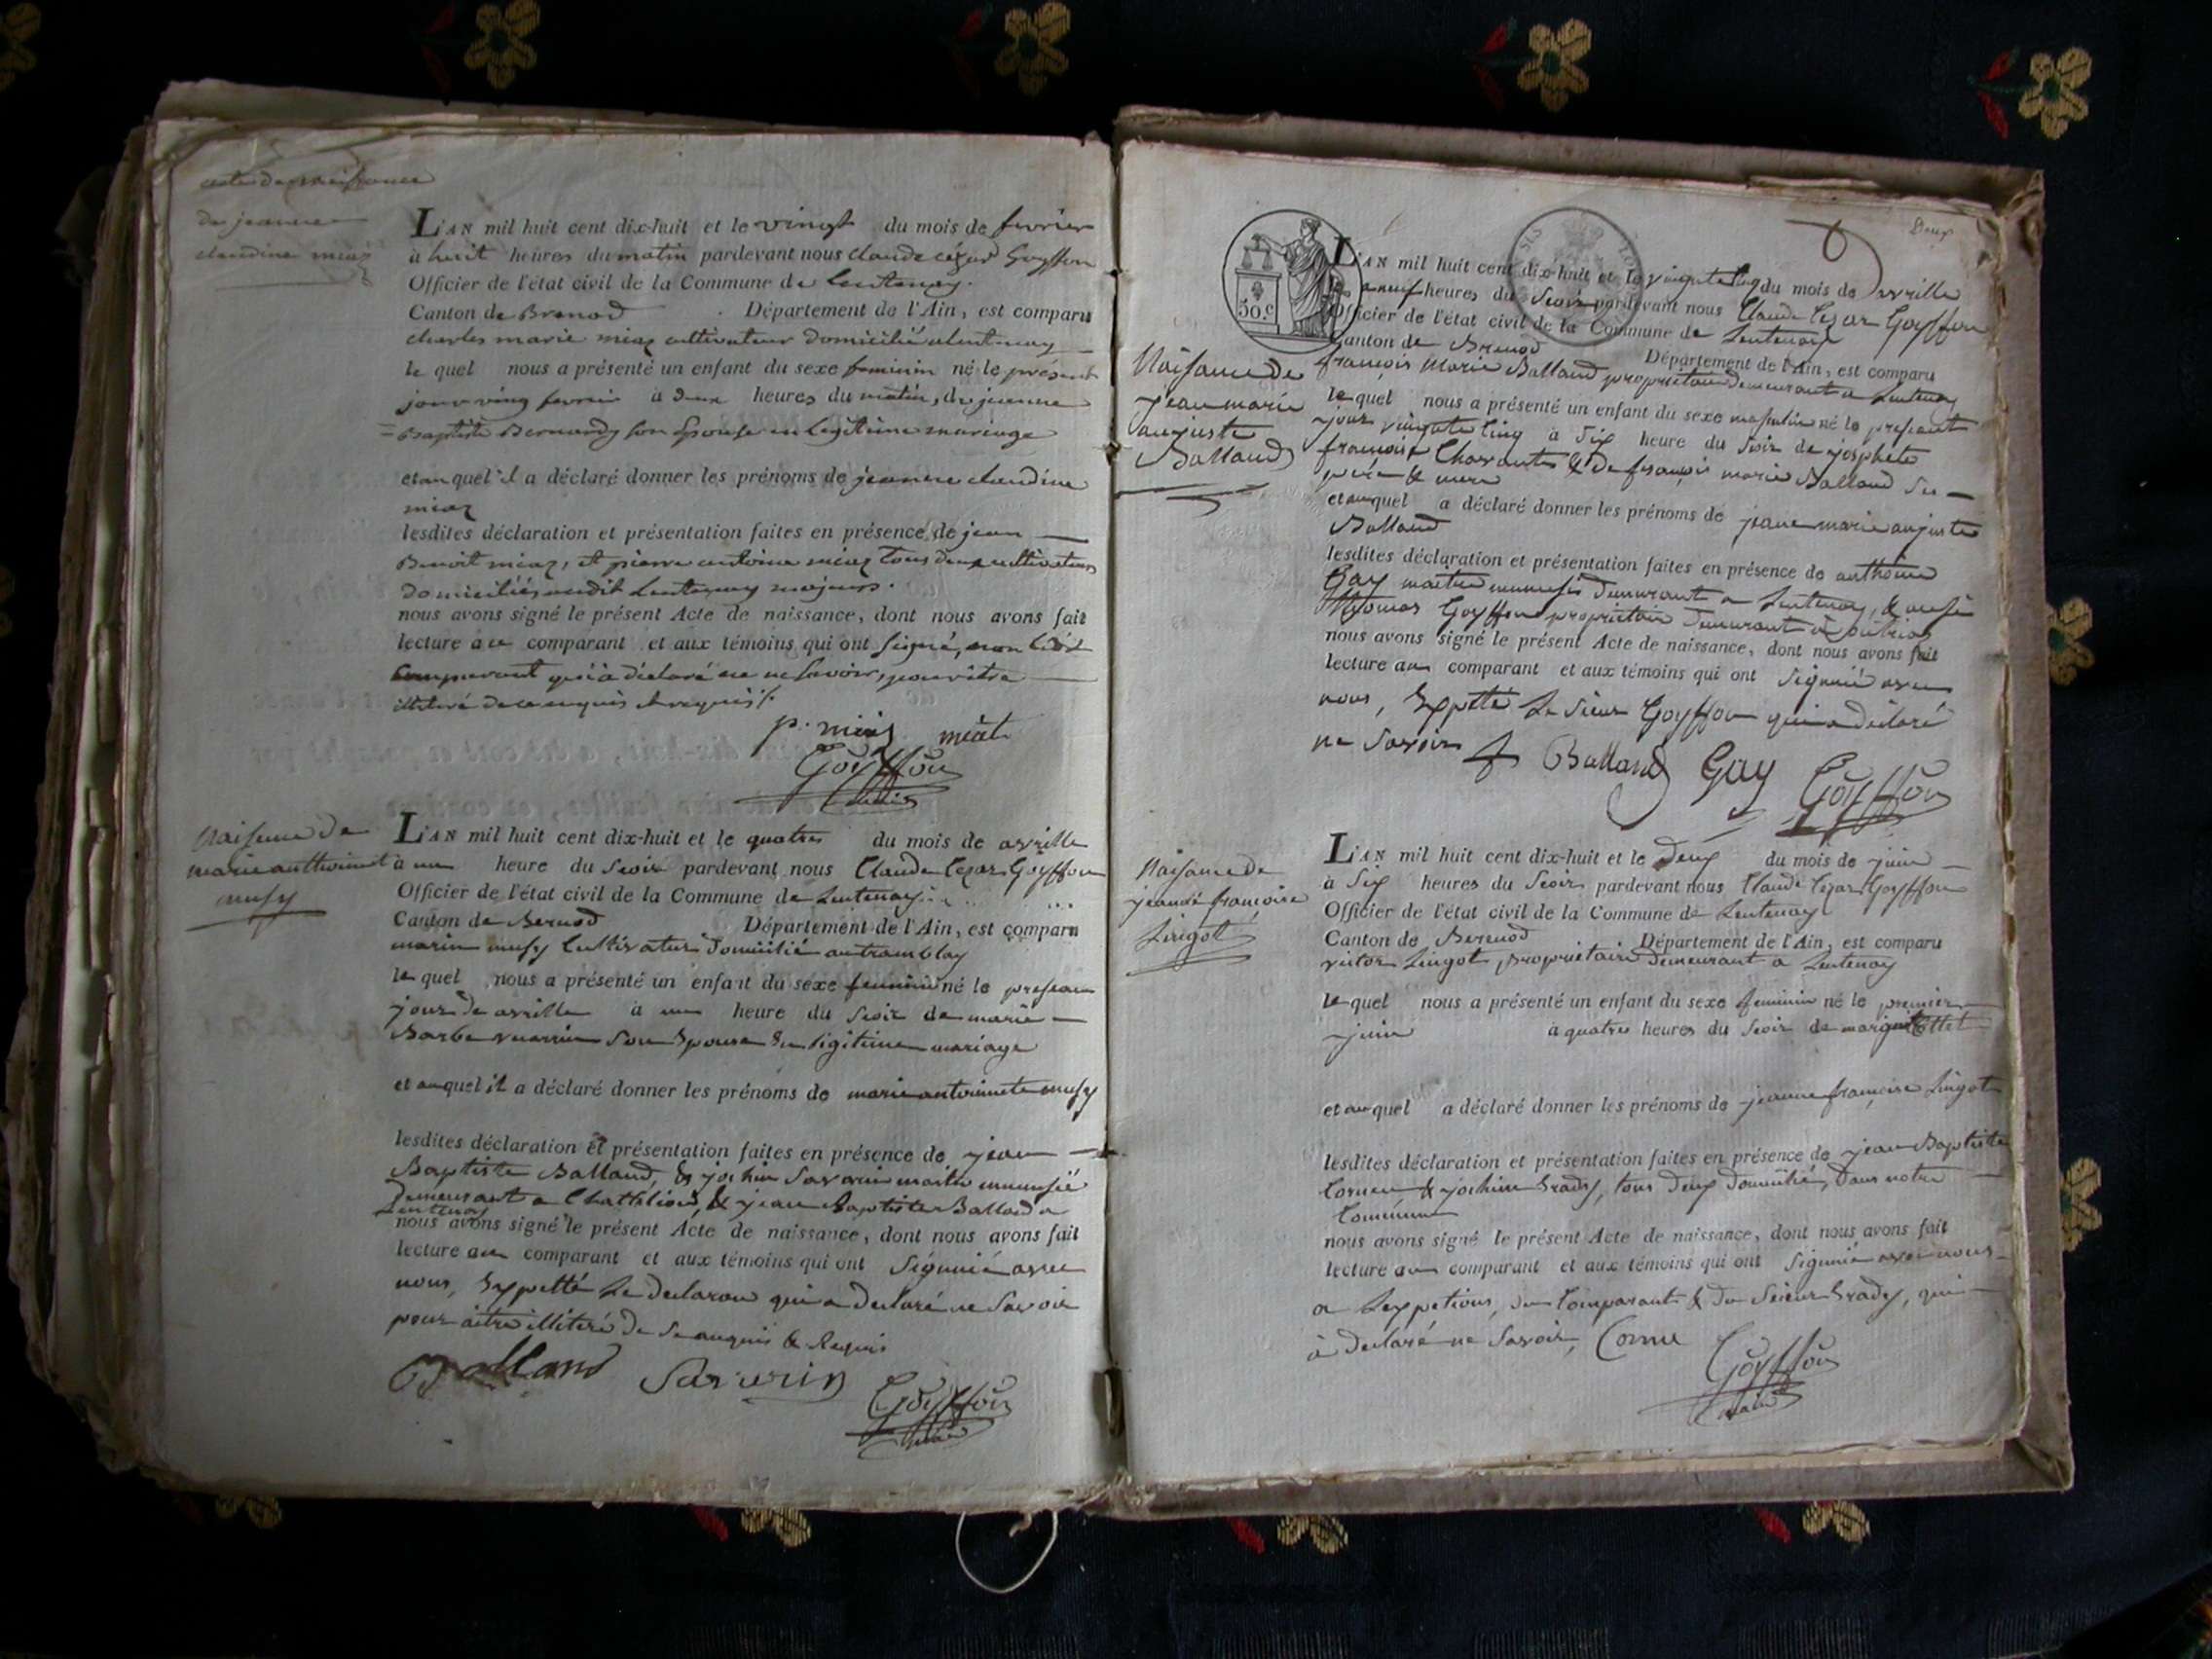 acte de naissance
de jeanne
claudine miaz
L'AN mil huit cent dix-huit et le vingt du mois de fevrier
à huit heures du matin pardevant nous claude cézar Goyffon
Officier de l'état civil de la Commune de Lentenay.
Canton de Brenod Département de l'Ain, est comparu
charles marie miaz cultivateur domicilié a Lentenay
le quel nous a présenté un enfant du sexe feminin né le présent
jour vingt fevrier à deux heures du matin, de jeanne
Baptiste Bernardy son Epouse en Legitime mariage
et au quel il a déclaré donner les prénoms de jeanne claudine
miaz
lesdites déclaration et présentation faites en présence de jean
Benoit miaz, et pierre antoine miaz tous deux cultivateurs
domiciliés audit Lentenay majeurs.
nous avons signé le présent Acte de naissance, dont nous avons fait
lecture à ce comparant et aux témoins qui ont signé, non ledit
comparant qui a déclaré ne savoir, pour être
illitéré de ce enquis et requis
p. miaz miat
Goyffon
maire
Naisance de
marie anthoinet
musy
L'AN mil huit cent dix-huit et le quatre du mois de avrille
à une heure du Seoir pardevant nous Claude Cezar Goyffon
Officier de l'état civil de la Commune de Lentenay
Canton de Bernod Département de l'Ain, est comparu
marin musy Cultivateur Domicilié au tramblay
le quel nous a présenté un enfant du sexe feminin né le presan
jour de avrille à une heure du Seoir de marie
Barbe son Epouse En Legitime mariage
et au quel il a déclaré donner les prénoms de marie antoinnete musy
lesdites déclaration et présentation faites en présence de jean
Baptiste Balland, & jochim Savarin maitre menusié
Demeurant a & jean Baptiste Balland a
Lentenay
nous avons signé le présent Acte de naissance, dont nous avons fait
lecture au comparant et aux témoins qui ont Signnié avec
nous, Exppetté Le declaran qui a declaré ne Savoir
pour aitre illiteré De Se anquis & Requis
Balland Savarin Goyffon
maire
Deux
50.c
L'AN mil huit cent dix-huit et le vingte Cinq du mois de avrille
a neuf heures du Seoir pardevant nous Claude Cezar Goyffon
Officier de l'état civil de la Commune de Lentenay
Canton de Brenod Département de l'Ain, est comparu
Naisance de
jean marie
auguste
Balland
françois Marie Balland propriétaire Demeurant a Lentenay
le quel nous a présenté un enfant du sexe masculin né le present
jour vingte Cinq à Six heure du Seoir de josphete
françoise Charvant & De françois marie Balland Ses
père & mere
et au quel a déclaré donner les prénoms de jean marie aujuste
Balland
lesdites déclaration et présentation faites en présence de anthoine
Gay maitre menusié Demeurant a Lentenay, & ausi
Thomas Goyffon propriétaire Demeurant a
nous avons signé le présent Acte de naissance, dont nous avons fait
lecture au comparant et aux témoins qui ont Signnié avec
nous, Exppetté Le Sieur Goyffon qui a déclaré
ne Savoir Balland Gay Goyffon
Naisance de
jeanne françoise
Lingot
L'AN mil huit cent dix-huit et le Deux du mois de juin
à Six heures du Seoir pardevant nous Claude Cezar Goyffon
Officier de l'état civil de la Commune de Lentenay
Canton de Berenod Département de l'Ain, est comparu
victor Lingot propriétaire Demeurant a Lentenay
le quel nous a présenté un enfant du sexe feminin né le premier
juin à quatre heures du Seoir de
et au quel a déclaré donner les prénoms de jeanne françoise Lingot
lesdites déclaration et présentation faites en présence de jean Baptiste
Cornu & jochim Grady, tous Deux Domicilié, Dans notre
Commune
nous avons signé le présent Acte de naissance, dont nous avons fait
lecture au comparant et aux témoins qui ont Signnié avec nous
a Lexpetions, du Comparant & du Seieur Grady, qui
à Declaré ne Savoir, Cornu Goyffon
maire